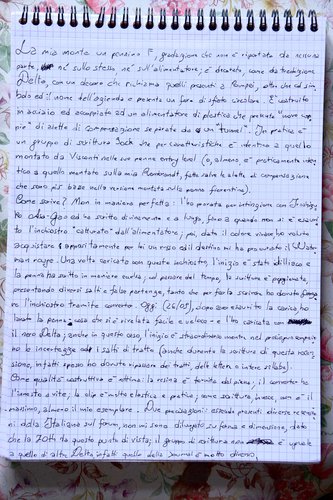 La mia monta un pennino F, gradazione che non è riportata da nessuna
parte, né sullo stesso né sull'alimentatore; è decorato, come da tradizione
Delta, con un decoro che richiama quelli presenti a Pompei, oltre che col sim
bolo ed il nome dell'azienda e presenta un foro di sfiato circolare. È costruito
in acciaio ed accoppiato ad un alimentatore di plastica che presenta nove cop
pie di alette di compensazione separate da un "tunnel". In pratica è
un gruppo di scrittura Bock che per caratteristiche è identico a quello
montato da Visconti nelle sue penne entry level (o, almeno, è praticamente iden
tico a quello montato sulla mia Rembrandt, fatta salva le alette di compensazione
che sono più basse nella versione montata sulla penna fiorentina).
Come scrive? Mah in maniera perfetta: l'ho provata per intinzione con
ho ed ho scritto divinamente e a lungo, fino a quando non si è esauri
to l'inchiostro "catturato" dall'alimentatore; poi, dato il colore vivace ho voluto
acquistare appositamente per lei un rosso ed il destino mi ha procurato il Water
man rouge. Una volta caricato con questo inchiostro, l'inizio è stato difficile e
la penna ha scritto in maniera anche, col passare del tempo, la scrittura è peggiorata,
presentando diversi salti e false partenze, tanto che per farla scrivere ho dovuto
re l'inchiostro tramite converter. Oggi (26/05), dopo aver esaurito la carica ho
lavato la penna, cosa che si è rivelata facile e veloce e l'ho caricata con
il nero Delta; anche in questo caso, l'inizio è straordinario mentre nel prosieguo
ho le incertezze ed i salti di tratto (anche durante la scrittura di questa recen
sione, infatti spesso ho dovuto ripassare dei tratti, delle lettere o intere sillabe).
Come qualità costruttiva è ottima: la resina è tornita dal pieno, il converter ha
l'innesto a vite; la clip è molto elastica e pratica; come scrittura, invece, non è il
massimo, almeno il mio esemplare. Due precisazioni: essendo presenti diverse recensio
ni della Italiana sul forum, non mi sono dilungato su forma e dimensione, dato
che la 70th da questo punto di vista; il gruppo di scrittura non è uguale
a quello di altre Delta, infatti quello della Journal è molto diverso.